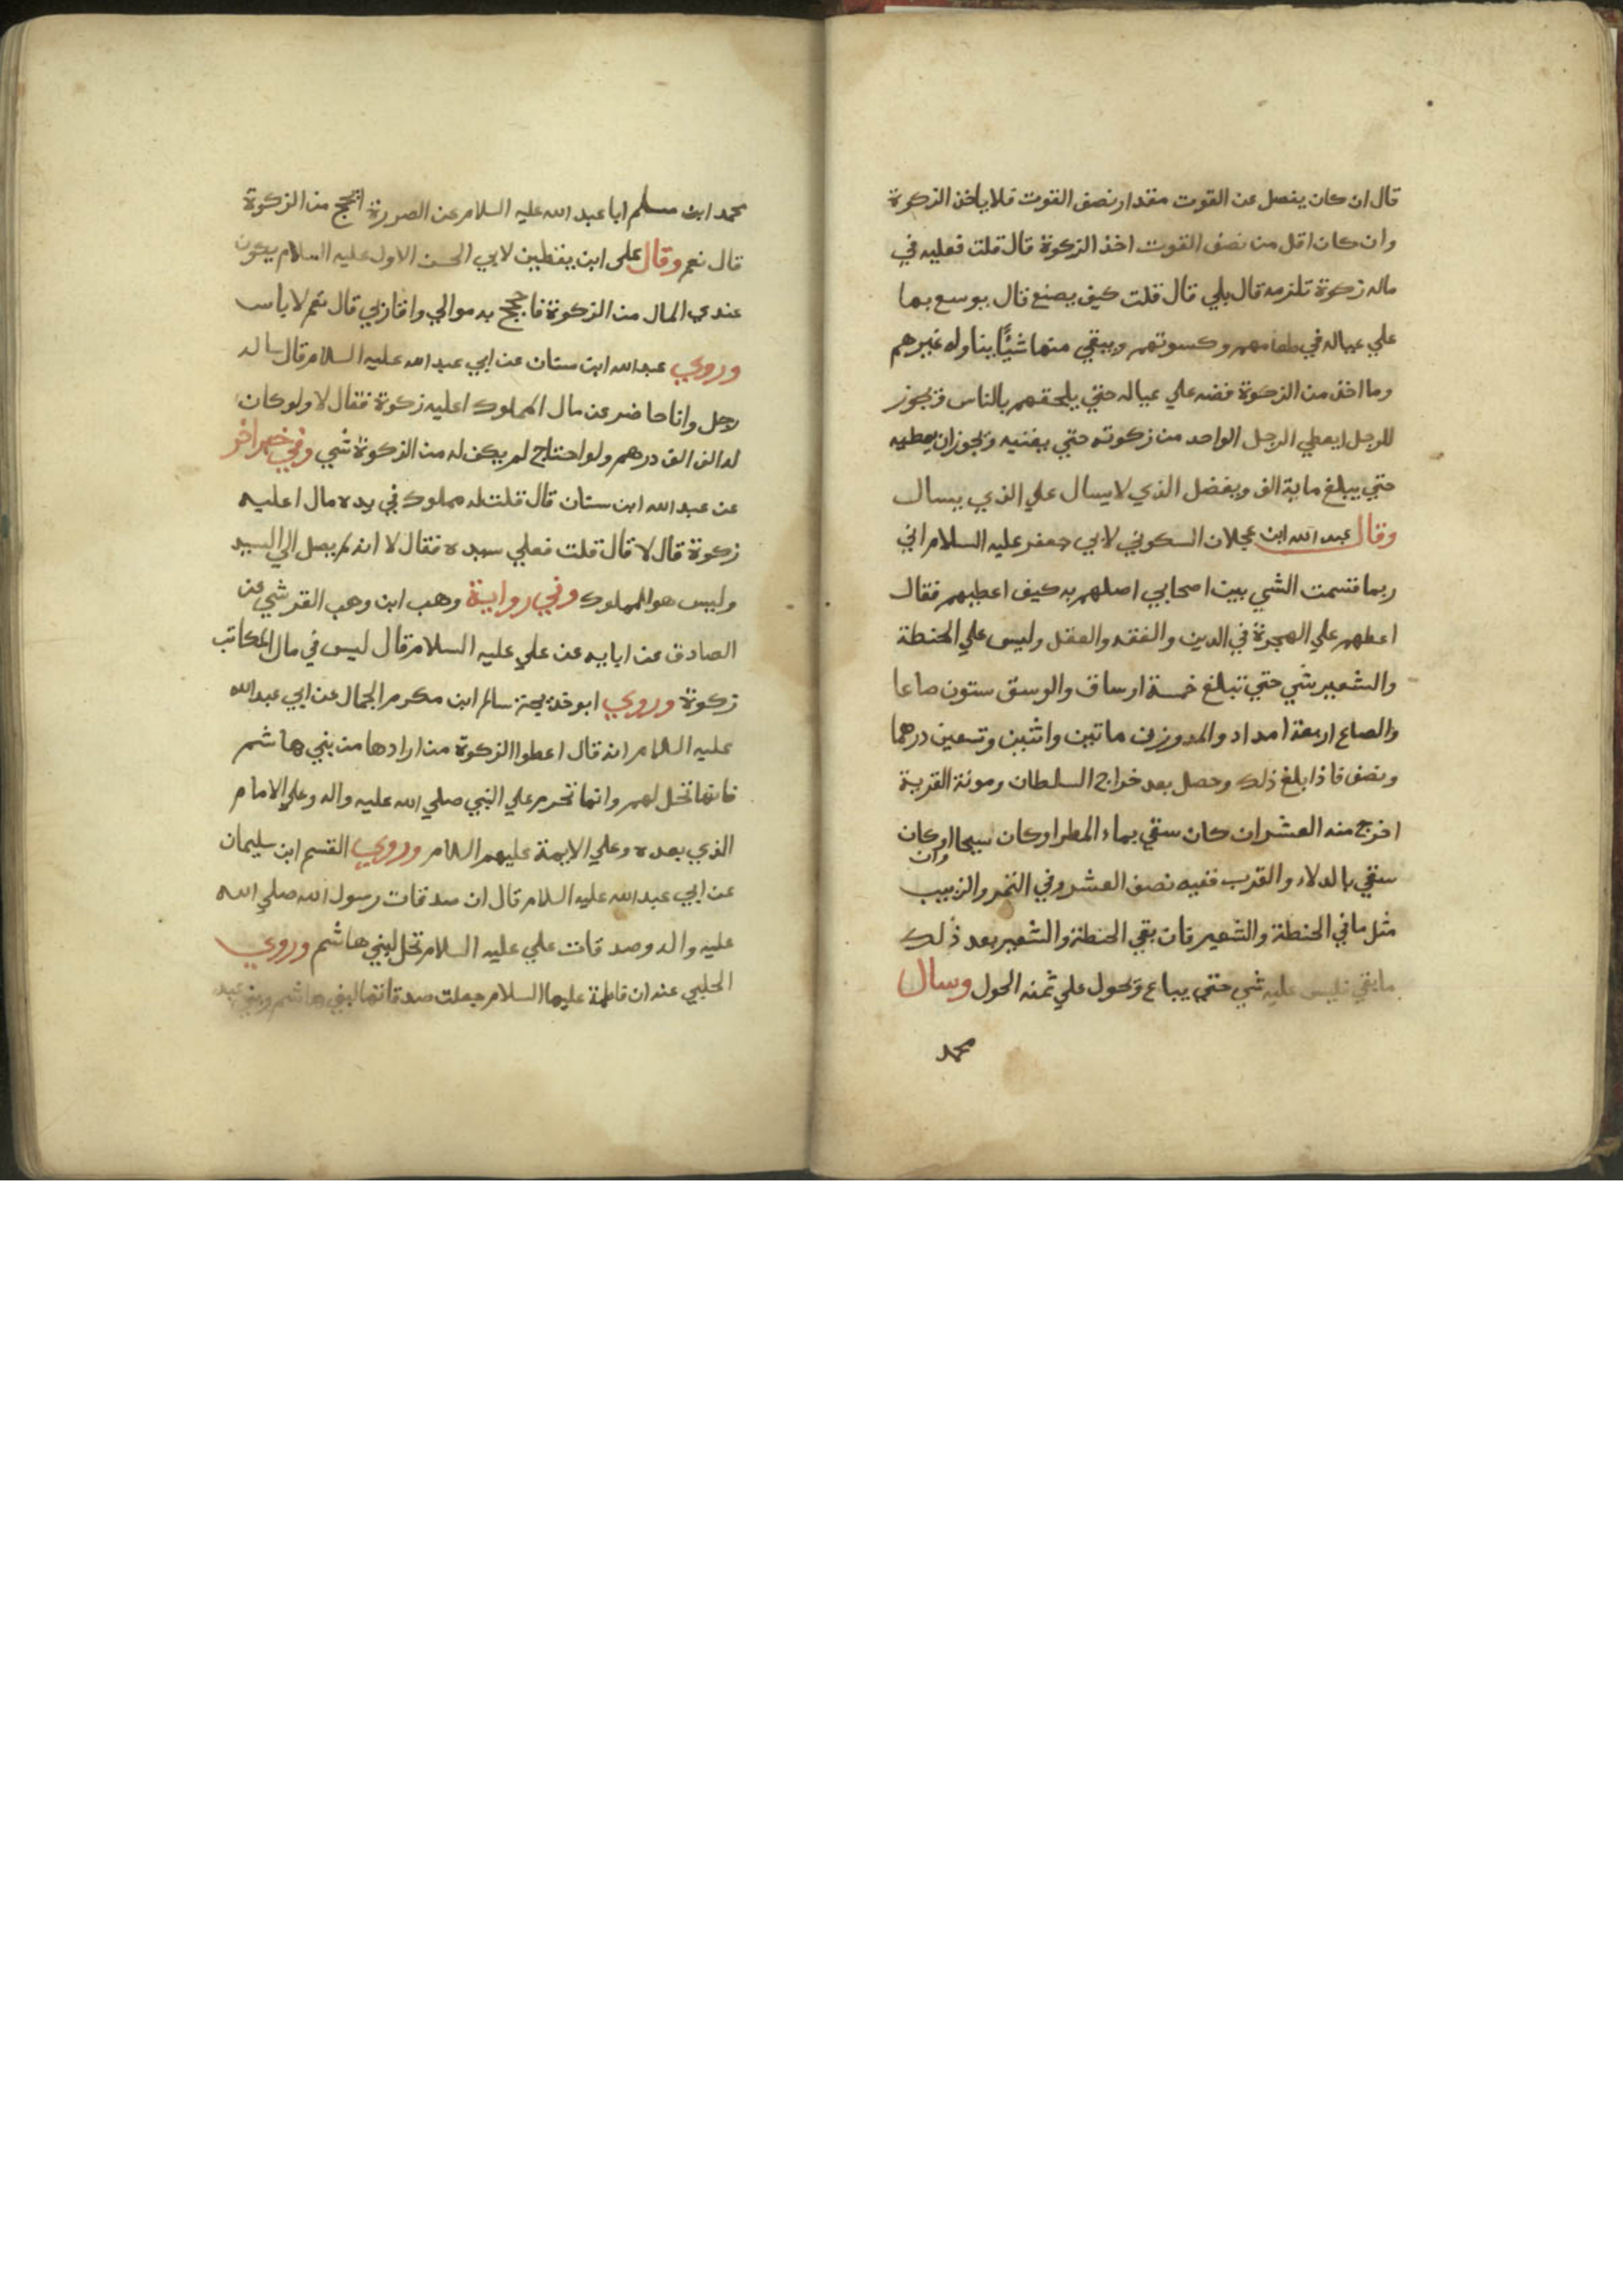 قال ان كان يفضل عن القوت مقدار نصف القوت فلا ياخذ الزكوة
وان كان اقل من نصف القوت اخذ الزكوة قال قلت فعليه في
ماله زكوة تلزمه قال بلي قال قلت كيف يصنع قال يوسع بها
علي عياله في طعامهم وكسوتهم ويبقي منها شيًا يناوله غيرهم
وما اخذ من الزكوة فضه علي عياله حتي يلحقهم بالناس ويجوز
للرجل ايعطي الرجل الواحد من زكوته حتي يغنيه ويجوز ان يعطيه
حتي يبلغ ماية الف ويفضل الذي لا يسال علي الذي يسال
وقال عبد الله ابن عجلان السكوني لابي جعفر عليه السلام اني
ربما قسمت الشي بين اصحابي اصلهم به كيف اعطيهم فقال
اعطهم علي الهجرة في الدين والفقه والعقل وليس علي الحنطة
والشعير شي حتي تبلغ خمسة اوساق والوسق ستون صاعا
والصاع اربعة امداد والمد وزن ماتين واثنين وتسعين درهما
ونصف فاذا بلغ ذلك وحصل بعد خراج السلطان ومونة القرية
اخرج منه العشر ان كان سقي بماء المطر او كان سيحا او كان
وان
سقي بالدلاء والقرب ففيه نصف العشر وفي التمر والزبيب
مثل ما في الحنطة والشعير فان بقي الحنطة والشعير بعد ذلك
ما بقي فليس عليه شي حتي يباع ويحول علي ثمنه الحول وسال
محمد
محمد ابن مسلم ابا عبد الله عليه السلام عن الصرورة ايحج من الزكوة
قال نعم وقال علي ابن يقطين لابي الحسن الاول عليه السلام يكون
عندي المال من الزكوة فاحجج به موالي واقاربي قال نعم لا باس
وروي عبد الله ابن سنان عن ابي عبد الله عليه السلام قال ساله
رجل وانا حاضر عن مال المملوك اعليه زكوة فقال لا ولو كان
له الف الف درهم ولو احتاج لم يكن له من الزكوة شي وفي خبر اخر
عن عبد الله ابن سنان قال قلت له مملوك في يده مال اعليه
زكوة قال لا قال قلت فعلي سيده فقال لا انه لم يصل الي السيد
وليس هو للمملوك وفي رواية وهب ابن وهب القرشي عن
الصادق عن ابايه عن علي عليه السلام قال ليس في مال المكاتب
زكوة وروي ابو خديجة سالم ابن مكرم الجمال عن ابي عبد الله
عليه السلام انه قال اعطوا الزكوة من ارادها من بني هاشم
فانها تحل لهم وانما تحرم علي النبي صلي الله عليه واله وعلي الامام
الذي بعده وعلي الايمة عليهم السلام وروي القسم ابن سليمان
عن ابي عبد الله عليه السلام قال ان صدقات رسول الله صلي الله
عليه واله وصدقات علي عليه السلام تحل لبني هاشم وروي
الحلبي عنه ان فاطمة عليها السلام جعلت صدقاتها لبني هاشم وبني عبد